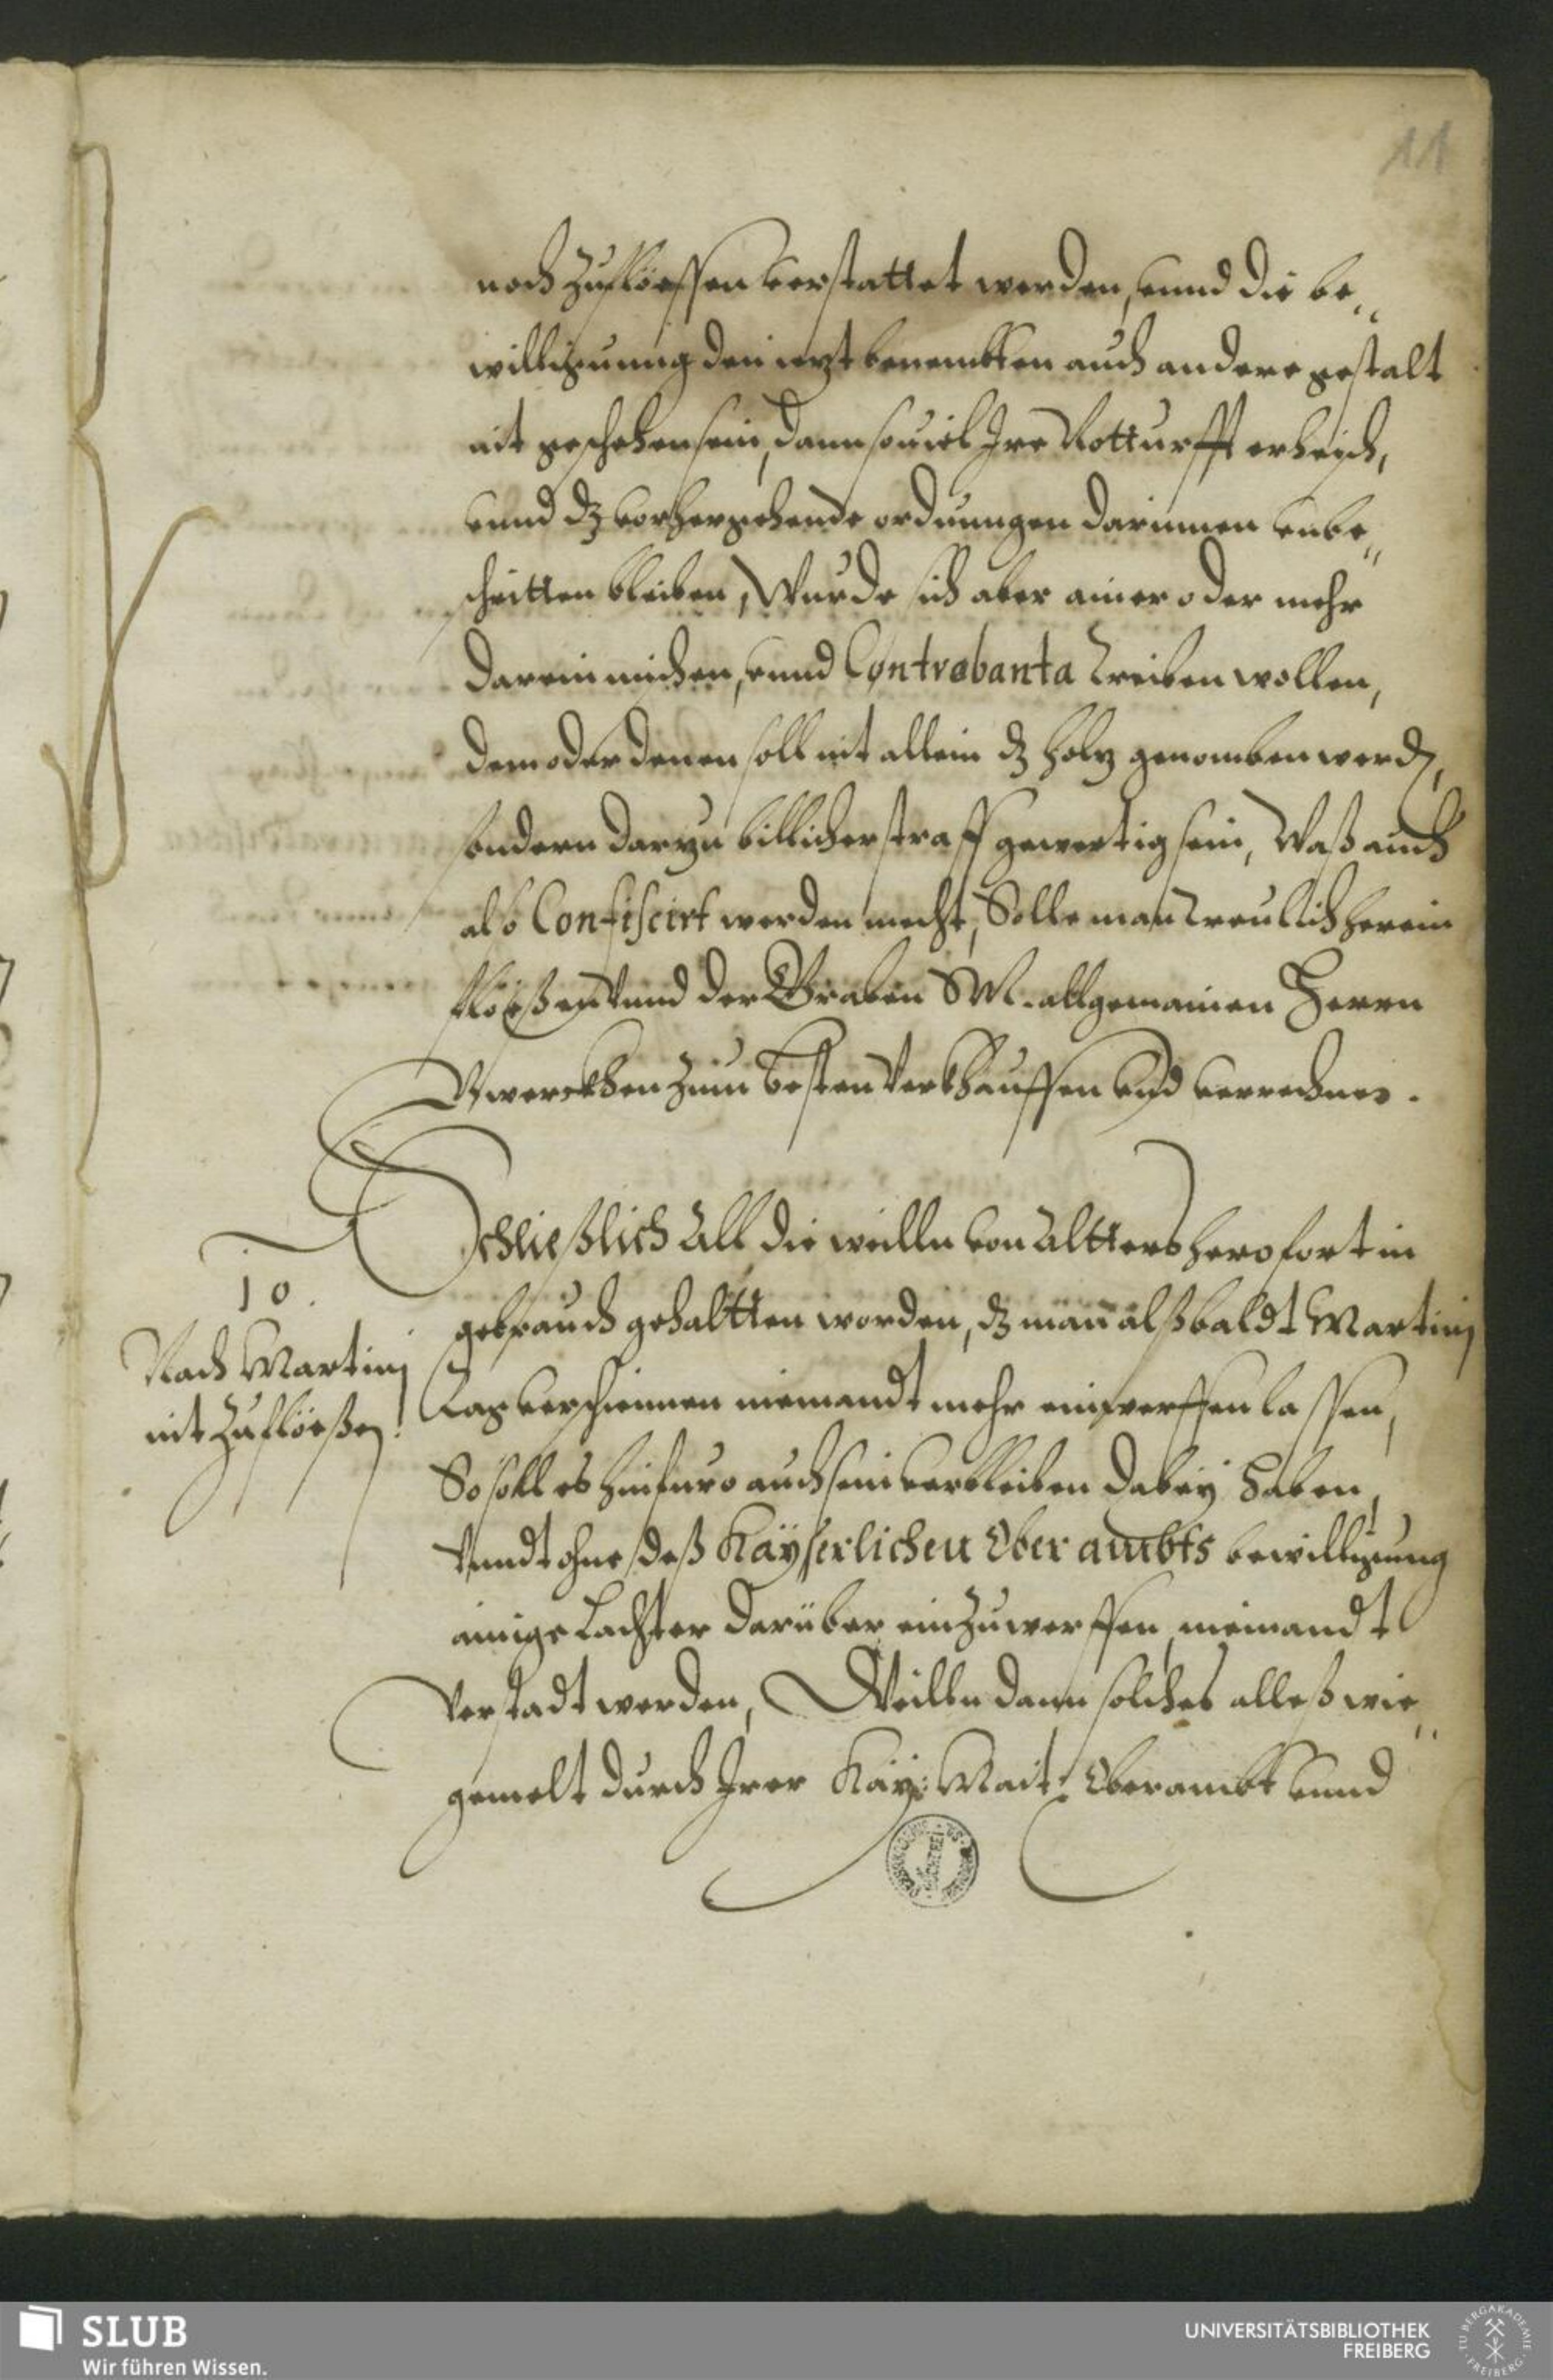 11
noch zuflöessen verstattet werden, vnnd die be„
willigunng den iezt benembten auch andere gestalt
nit geschehen sein, dann souiel Jre Notturfft erheisch,
vnnd dz vorhergehende ordnungen darinnen vnbe„
schritten bleiben, Wurde sich aber ainer oder mehr
darein mischen, vnnd Contrabanta treiben wollen,
dem oder denen soll nit allein dz holz genomben werdn,
sondern darzu billicher straff gewertig sein, Waß auch
also Confiscirt werden mecht, Solle man treulich herein
flößen vnnd der Graben M. allgemainen Herrn
Gwerckhen zum besten verkhauffen vnd verrechnen.
Schließlich All die weilln von Altters hero fort in
gebrauch gehaltten worden, dz man alßbaldt Martinj
Tag verschinnen niemandt mehr einwerffen lassen,
So soll es hinfuro auch sein verbleiben dabey haben,
Vnndt ohne deß Kayserlichen Ober ambts bewilligung
ainige Lachter darüber einzuwerffen, niemandt
verstadt werden, Weilln dann solches alleß wie„
gemelt durch Jrer Kay: Mait: Oberambt vnnd
10.
Nach Martinj
nit zuflößen.
SLUB
Wir führen Wissen.
UNIVERSITÄTSBIBLIOTHEK
FREIBERG
TU BERGAKADEMIE
FREIBERG